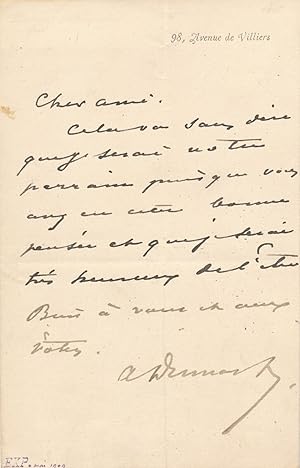 98, Avenue de Villiers
Cher ami.
Cela va sans dire
que je serai votre
parrain puisque vous
avez eu cette bonne
pensée et que je serai
très heureux de l'être
Bien à vous et aux
vôtres.
ADumas f